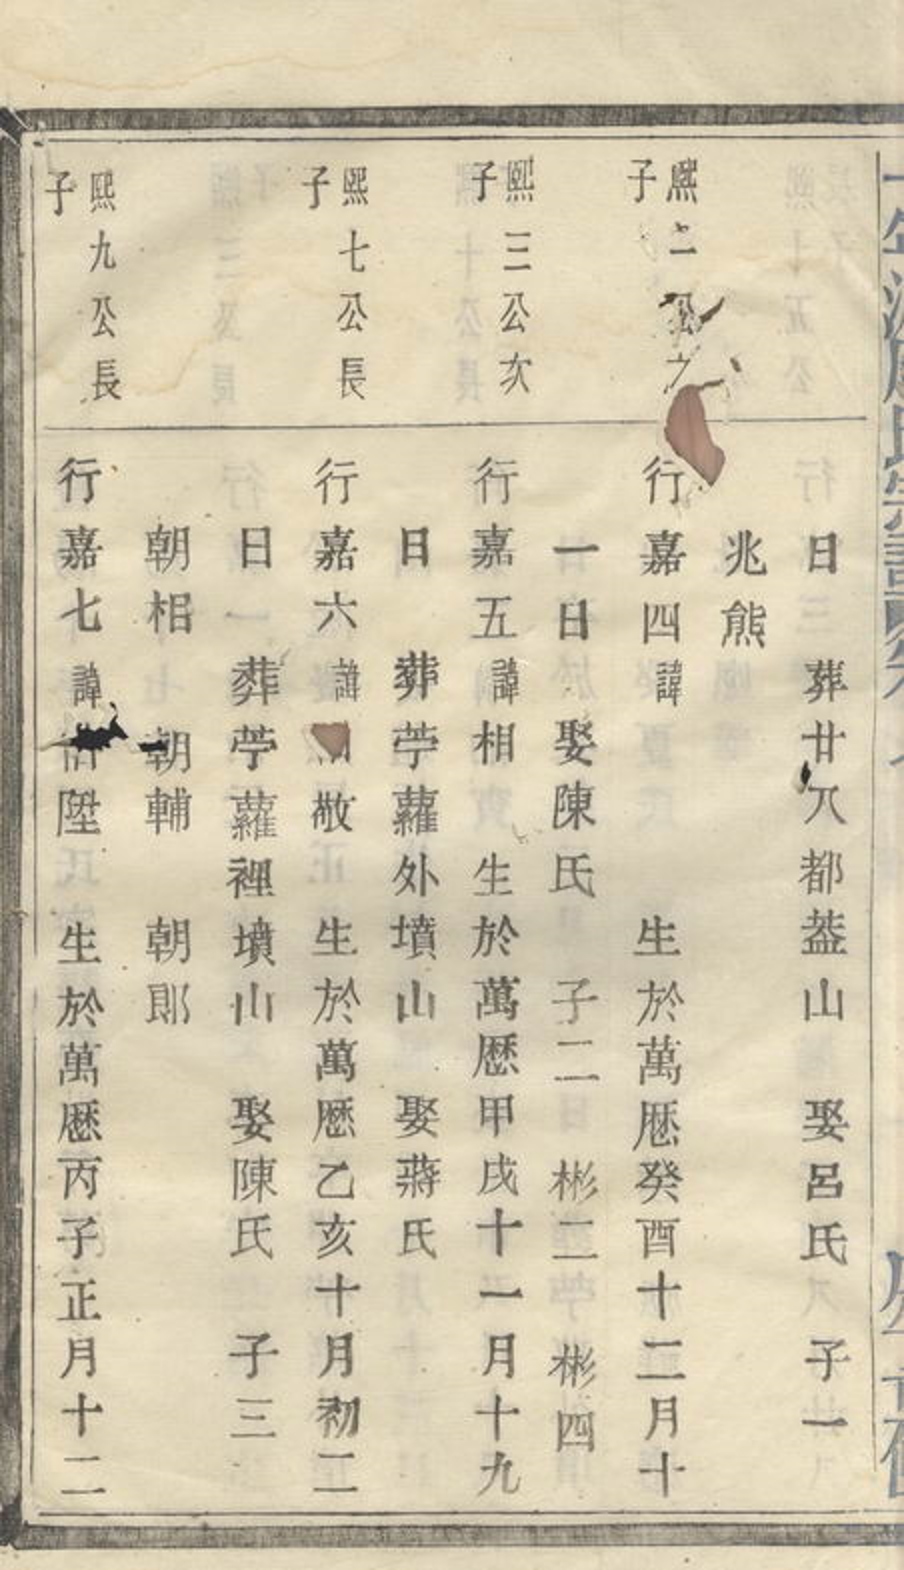 日 葬廿八都蓋山 娶呂氏 子一
兆熊
熈二公之
子
行嘉四諱 生於萬厯癸酉十二月十
一日 娶陳氏 子二 彬二 彬四
熈三公次
子
行嘉五諱相 生於萬厯甲戌十一月十九
日 葬苧蘿外墳山 娶蔣氏
熈七公長
子
行嘉六諱敬 生於萬厯乙亥十月初二
日 葬苧蘿裡墳山 娶陳氏 子三
朝相 朝輔 朝郎
熈九公長
子
行嘉七諱陞 生於萬厯丙子正月十二